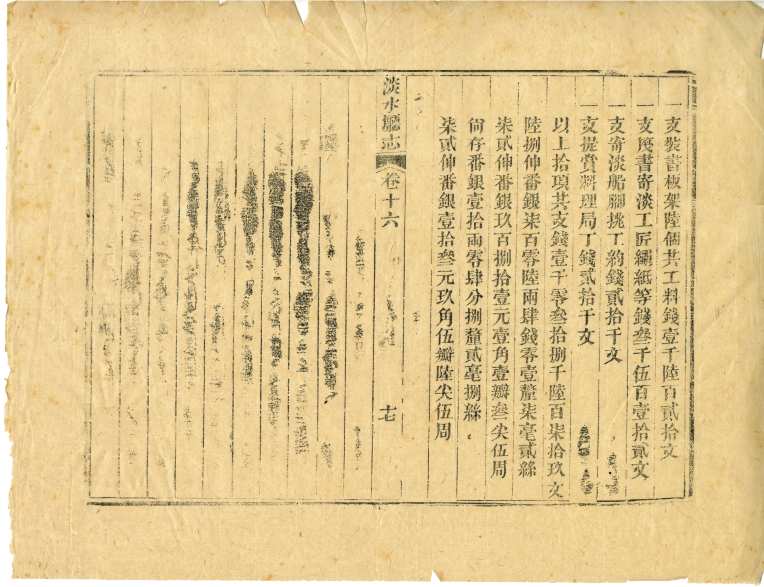 一支裝書板架陸個共工料錢壹千陸百貳拾文
一支裝書寄淡工匠繩紙等錢叁千伍百壹拾貳文
一支寄淡船腳挑工約錢貳拾千文
一支提賞料理局丁錢貳拾千文
以上拾項共支錢壹千零叁拾捌千陸百柒拾玖文
陸捌伸番銀柒百零陸兩肆錢零壹釐柒毫貳絲
柒貳伸番銀玖百捌拾壹元壹角壹瓣叁尖伍周
尙存番銀壹拾兩零肆分捌釐貳毫捌絲
柒貳伸番銀壹拾叁元玖角伍瓣陸尖伍周
淡水廳志 卷十六 十七